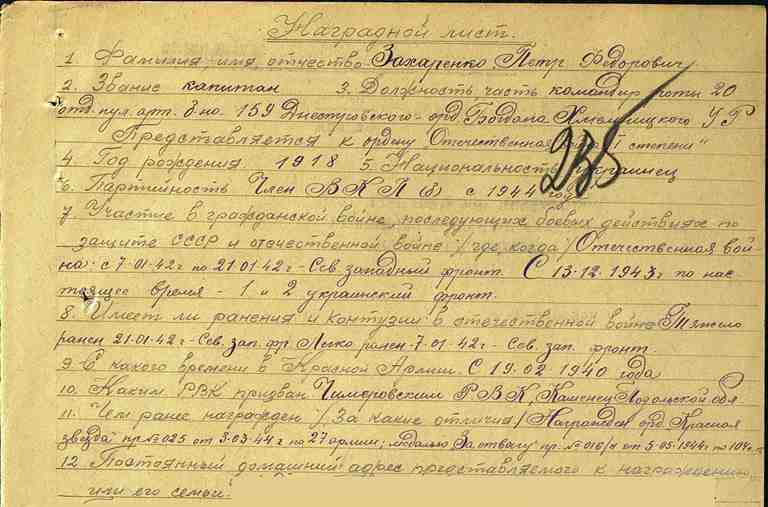 Наградной лист.
1. Фамилия, имя, отчество Захаренко Петр Федорович
2. Звание капитан 3. Должность часть командир роты 20
отд. пул. арт. б-на. 159 Днестровского орд. Богдана Хмельницкого УР
Представляется к ордену „Отечественная I степени"
4. Год рождения 1918 5. Национальность украинец
6. Партийность Член ВКП(б) с 1944 года
7. Участие в гражданской войне, последующих боевых действиях по
защите СССР и отечественной войне /где, когда/ Отечественная вой-
на с 7-01-42г по 21-01-42г - Сев. западный фронт. С 13-12-1943г по нас
тоящее время - 1 и 2 украинский фронт.
8. Имеет ли ранения и контузии в отечественной войне Тяжело
ранен 21-01-42г - Сев. зап. фр Легко ранен 7-01-42г - Сев. зап. фронт.
9. С какого времени в Красной Армии С 19-02-1940 года
10. Каким РВК призван РВК, Каменец Подольской обл
11. Чем ранее награжден /За какие отличия/ Награжден орд. Красная
звезда пр. № 025 от 3-03-44г по 27 армии; медалью За отвагу пр. № от 5-05-1944г по
12. Постоянный домашний адрес представляемого к награждению
или его семьи: